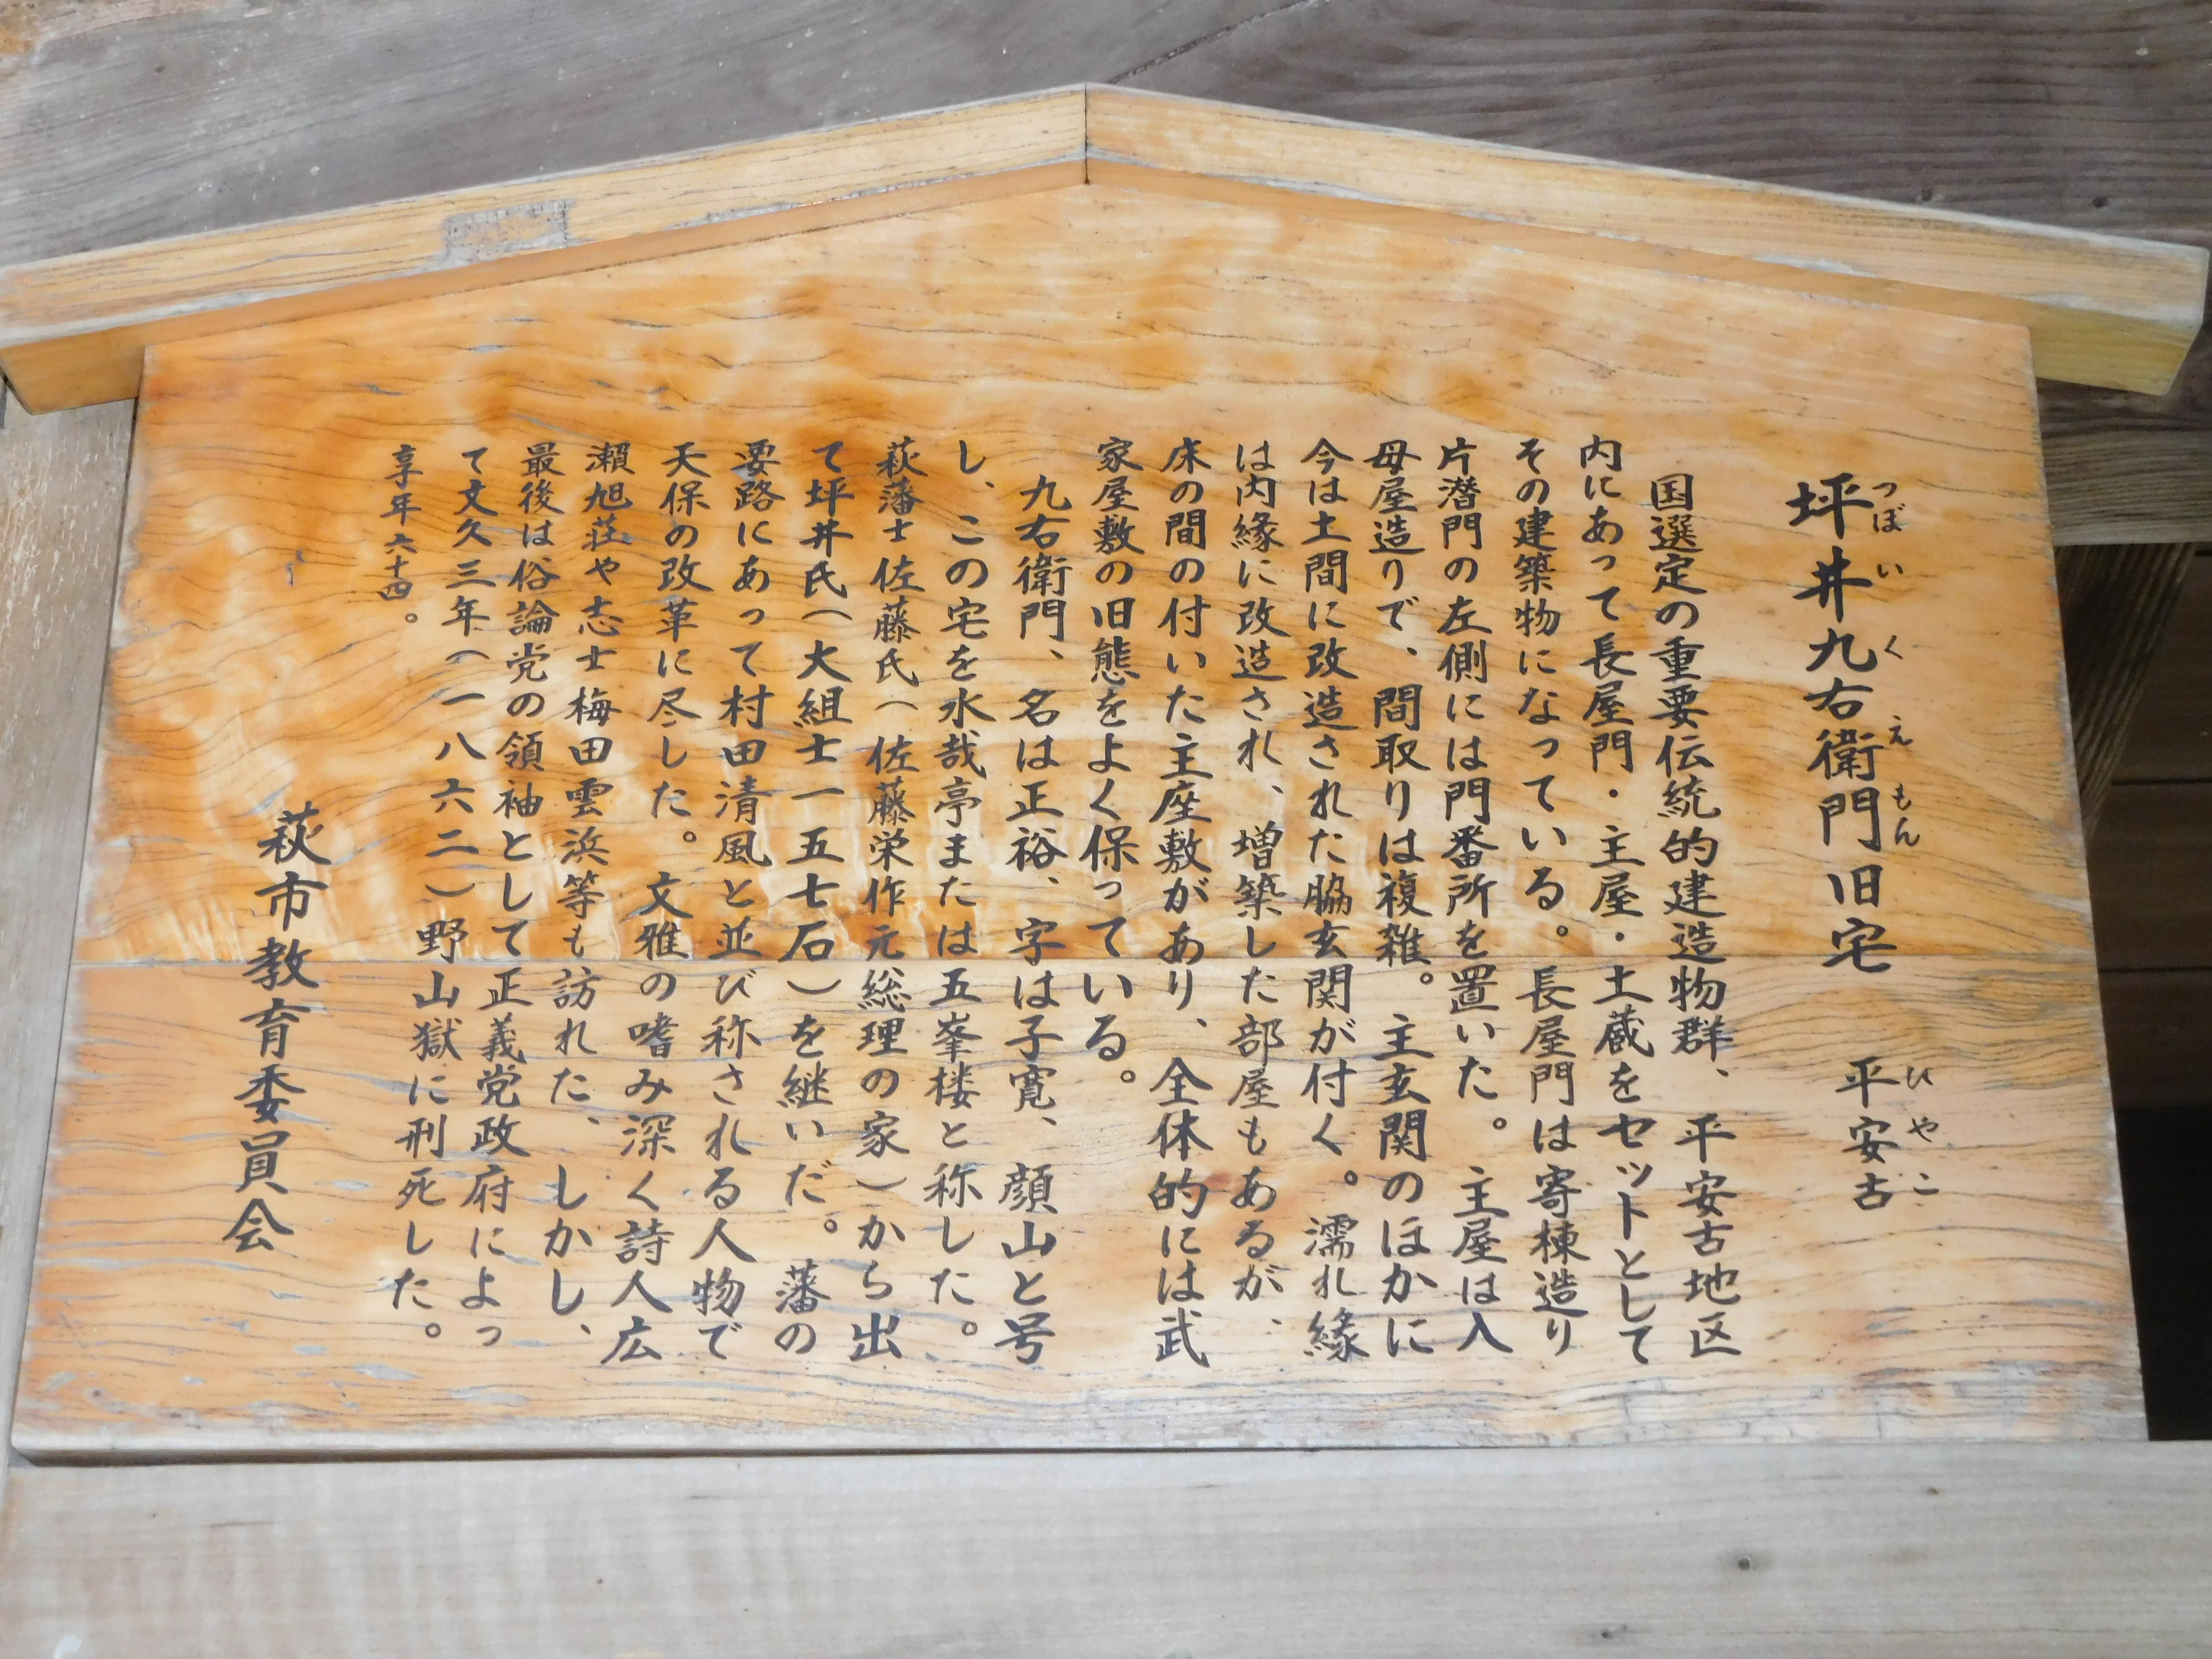 坪井九右衛門旧宅　平安古
つぼい　く　えもん　ひやこ
国選定の重要伝統的建造物群、平安古地区
内にあって長屋門・主屋・土蔵をセットとして
その建築物になっている。長屋門は寄棟造り
片潜門の左側には門番所を置いた。主屋は入
母屋造りで、間取りは複雑。主玄関のほかに
今は土間に改造された脇玄関が付く。濡れ縁
は内縁に改造され、増築した部屋もあるが、
床の間の付いた主座敷があり、全体的には武
家屋敷の旧態をよく保っている。
九右衛門、名は正裕、字は子寛、顔山と号
し、この宅を水哉亭または五峯楼と称した。
萩藩士佐藤氏（佐藤栄作元総理の家）から出
て坪井氏（大組士一五七石）を継いだ。藩の
要路にあって村田清風と並び称される人物で
天保の改革に尽した。文雅の嗜み深く詩人広
瀬旭荘や志士梅田雲浜等も訪れた、しかし、
最後は俗論党の領袖として正義党政府によっ
て文久三年（一八六二）野山獄に刑死した。
享年六十四。
萩市教育委員会